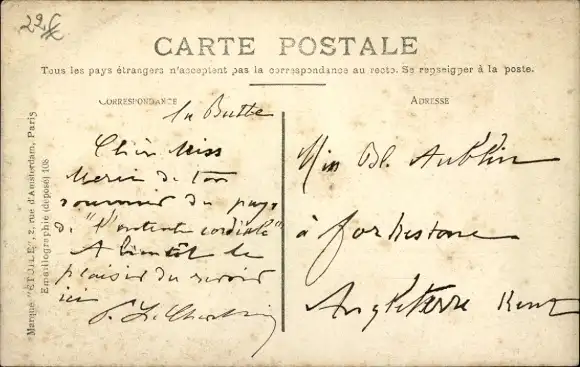 22 f
CARTE POSTALE
Tous les pays étrangers n'acceptent pas la correspondance au recto. Se renseigner à la poste.
CORRESPONDANCE
La Butte
Chère Miss
Merci de ton
souvenir du pays
de "l'entente cordiale"
A bientôt le
plaisir du revoir
ici
ADRESSE
Miss Bl. Aublin
à Forkestone
Angleterre Kent
Marque "ÉTOILE", 2, rue d'Amsterdam, Paris
Emaillographie (déposé) 108